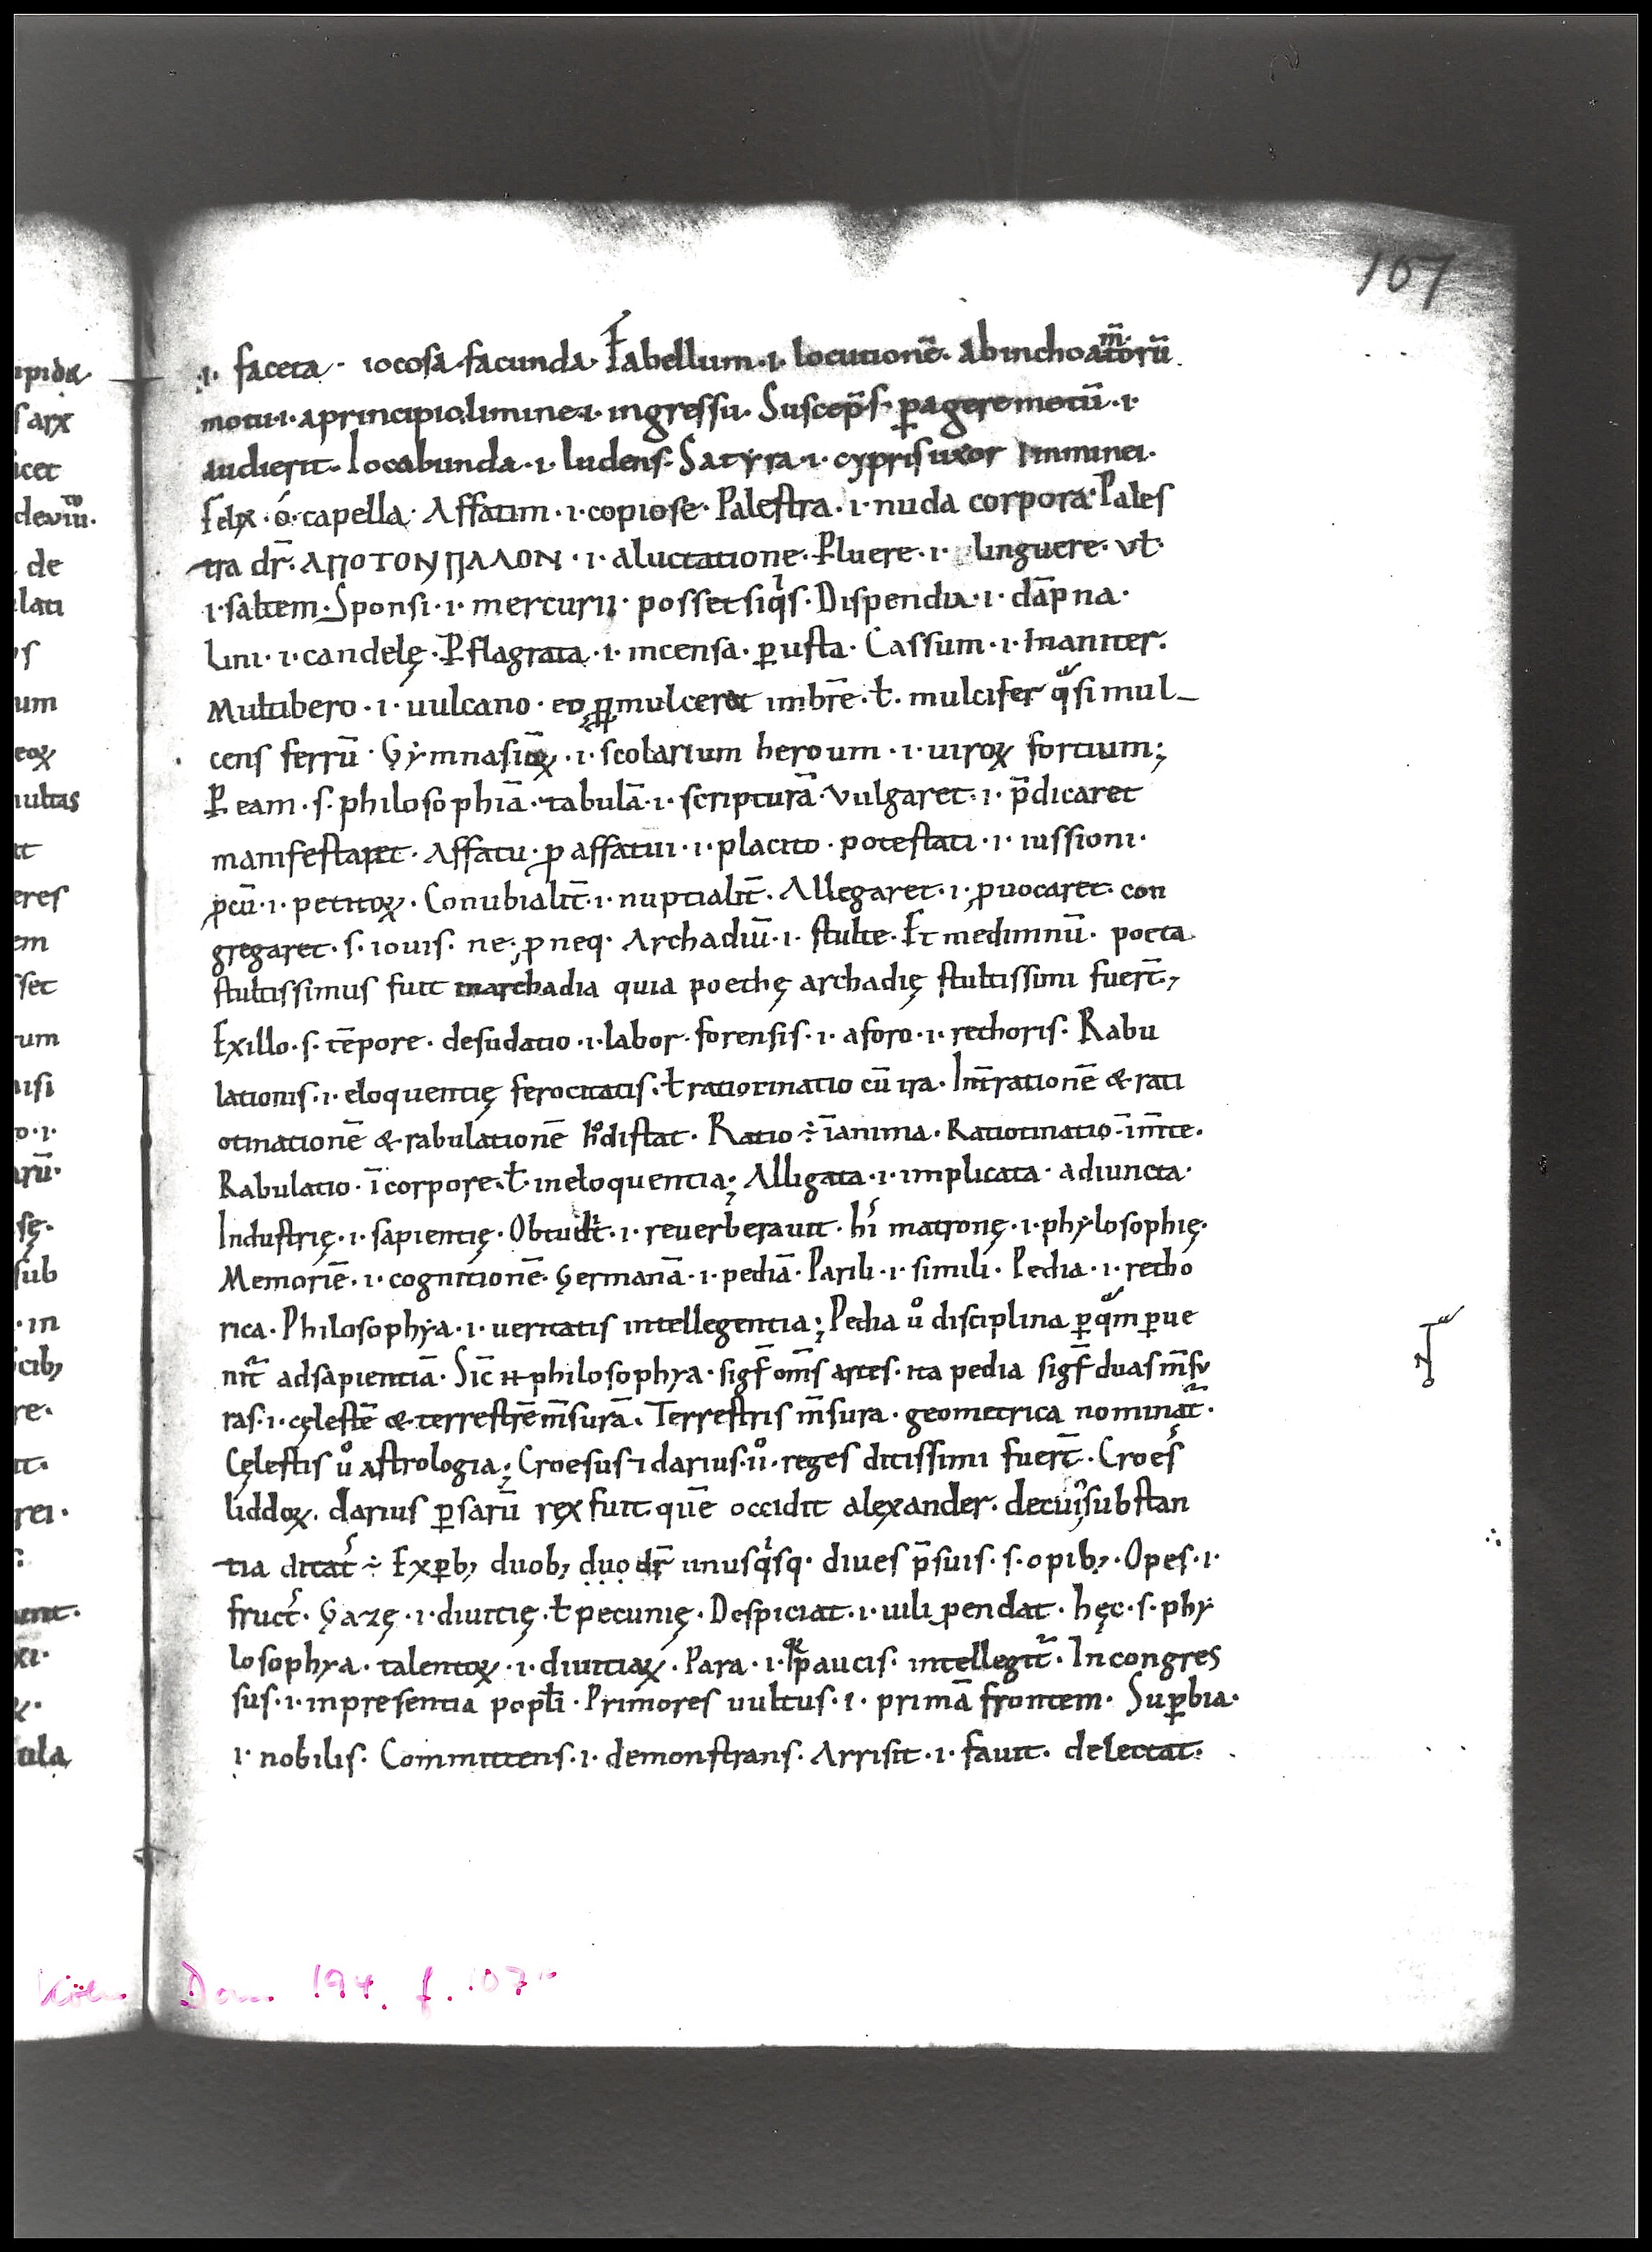 107
.i. faceta · iocosa · facunda · Fabellum · i · locutionē · Abinchoatorū
motu · i · aprincipio · limine · i · ingressu · Suscep̄s · ꝑageremotū · i ·
audierit · Iocabunda · i · ludens · Satyra · i · cyprisuxor Imminei ·
Felix · ó · capella · Affatim · i · copiose · Palestra · i · nuda corpora · Pales
tra dr̄ · ΑΠΟΤΟΝ ΠΑΛΟΝ · i · aluctatione · Pluere · i · linguere · Vƚ ·
i · saltem · Sponsi · i · mercurii · possetsiqͥs · Dispendia · i · dāpna ·
Lini · i · candelę · P̲flagrata · i · incensa · ꝑusta · Cassum · i · Inaniter ·
Multibero · i · uulcano · mulcerat imbrē · ƚ · mulcifer qᷓsi mul
cens ferrū · Gymnasioꝝ · i · scolarium heroum · i · uiroꝝ fortium ;
P̲ eam · s · philosophiā · tabulā · i · scripturā · Vulgaret · i · p̄dicaret
manifestaret · Affatu · ꝓ affatui · i · placito · potestati · i · iussioni ·
ꝓcū · i · petitoꝝ · Conubialit̄ · i · nuptialit̄ · Allegaret · i · ꝓuocaret · con
gregaret · s · iouis · ne · ꝓ neq · Archadiū · i · stulte · Et medimnū · poeta
stultissimus fuit inarchadia quia poethę archadię stultissimi fuer̄t ;
Exillo · s · tēpore · desudatio · i · labor · forensis · i · aforo · i · rethoris · Rabu
lationis · i · eloquentię ferocitatis · ƚ ratiocinatio cū ira · Int̄rationē & rati
otinationē & rabulationē h°distat · Ratio ÷ īanima · Ratiotinatio · īm̄te ·
Rabulatio · ī corpore · ƚ · ineloquentia ; Alligata · i · implicata · adiuncta ·
Industrię · i · sapientię · Obtudit · i · reuerberauit · hͥ matronę · i · phylosophię ·
Memoriē · i · cognitionē · Germanā · i · pediā · Parili · i · simili · Pedia · i · retho
rica · Philosophya · i · ueritatis intellegentia ; Pedia u° disciplina ꝑqᷓm ꝑue
nit̄ adsapientiā · Sic̄ philosophya · sigf̄ om̄s artes · ita pedia sigf̄ duasm̄su
ras · i · cęlestē & terrestrēm̄surā · Terrestris m̄sura · geometrica nominat̄ ·
Cęlestis u° astrologia ; Croesus ⁊ darius · ii° · reges ditissimi fuer̄t · Croes᾽
liddoꝝ · darius ꝑsarū rex fuit quē occidit alexander · substan
tia ditat᾽ ÷ Exꝑb; duob; duo dr̄ unusqͥsq · diues p̄suis · s · opib; · Opes · i ·
fruct᾽ · Gazę · i · diuitię · ƚ pecunię · Despiciat · i · uili pendat · hęc · s · phy
losophya · talentoꝝ · i · diuitiaꝝ · Para · i · paucis · intellegit̄ · Incongres
sus · i · inpresentia popƚi · Primores uultus · i · primā frontem · Suꝑbia ·
i · nobilis · Committens · i · demonstrans · Arrisit · i · fauit · delectat ·
Köln Dom 194. f. 107r